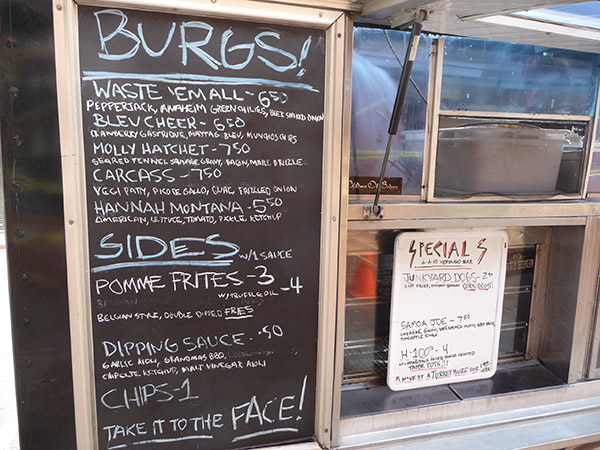 BURGS!
WASTE 'EM ALL - 6.50
PEPPERJACK, ANAHEIM GREEN CHILIES, BEER SOAKED ONION
BLEU CHEER - 6.50
CRANBERRY GASTRIQUE, MAYTAG BLEU, MUNCHOS CHIPS
MOLLY HATCHET - 7.50
SEARED FENNEL SAUSAGE GRAVY, BACON, MAPLE DRIZZLE
CARCASS - 7.50
VEGI PATTY, PICO DE GALLO, GUAC, FRIZZLED ONION
HANNAH MONTANA - 5.50
AMERICAN, LETTUCE, TOMATO, PICKLE, KETCHUP
SIDES W/1 SAUCE
POMME FRITES - 3
W/TRUFFLE OIL - 4
BELGIAN STYLE, DOUBLE DIPPED FRIES
DIPPING SAUCE - .50
GARLIC AIOLI, GRANDMAS BBQ,
CHIPOTLE KETCHUP, MALT VINEGAR AIOLI
CHIPS - 1
TAKE IT TO THE FACE!
SPECIALS
VERDUGO BAR
JUNKYARD DOGS -
CORN DOGS!
SAMOA JOE - 7.50
PINEAPPLE RINGS
H-100'S - 4
TATOR TOTS!!!
MAKE IT A TURKEY BURG FOR